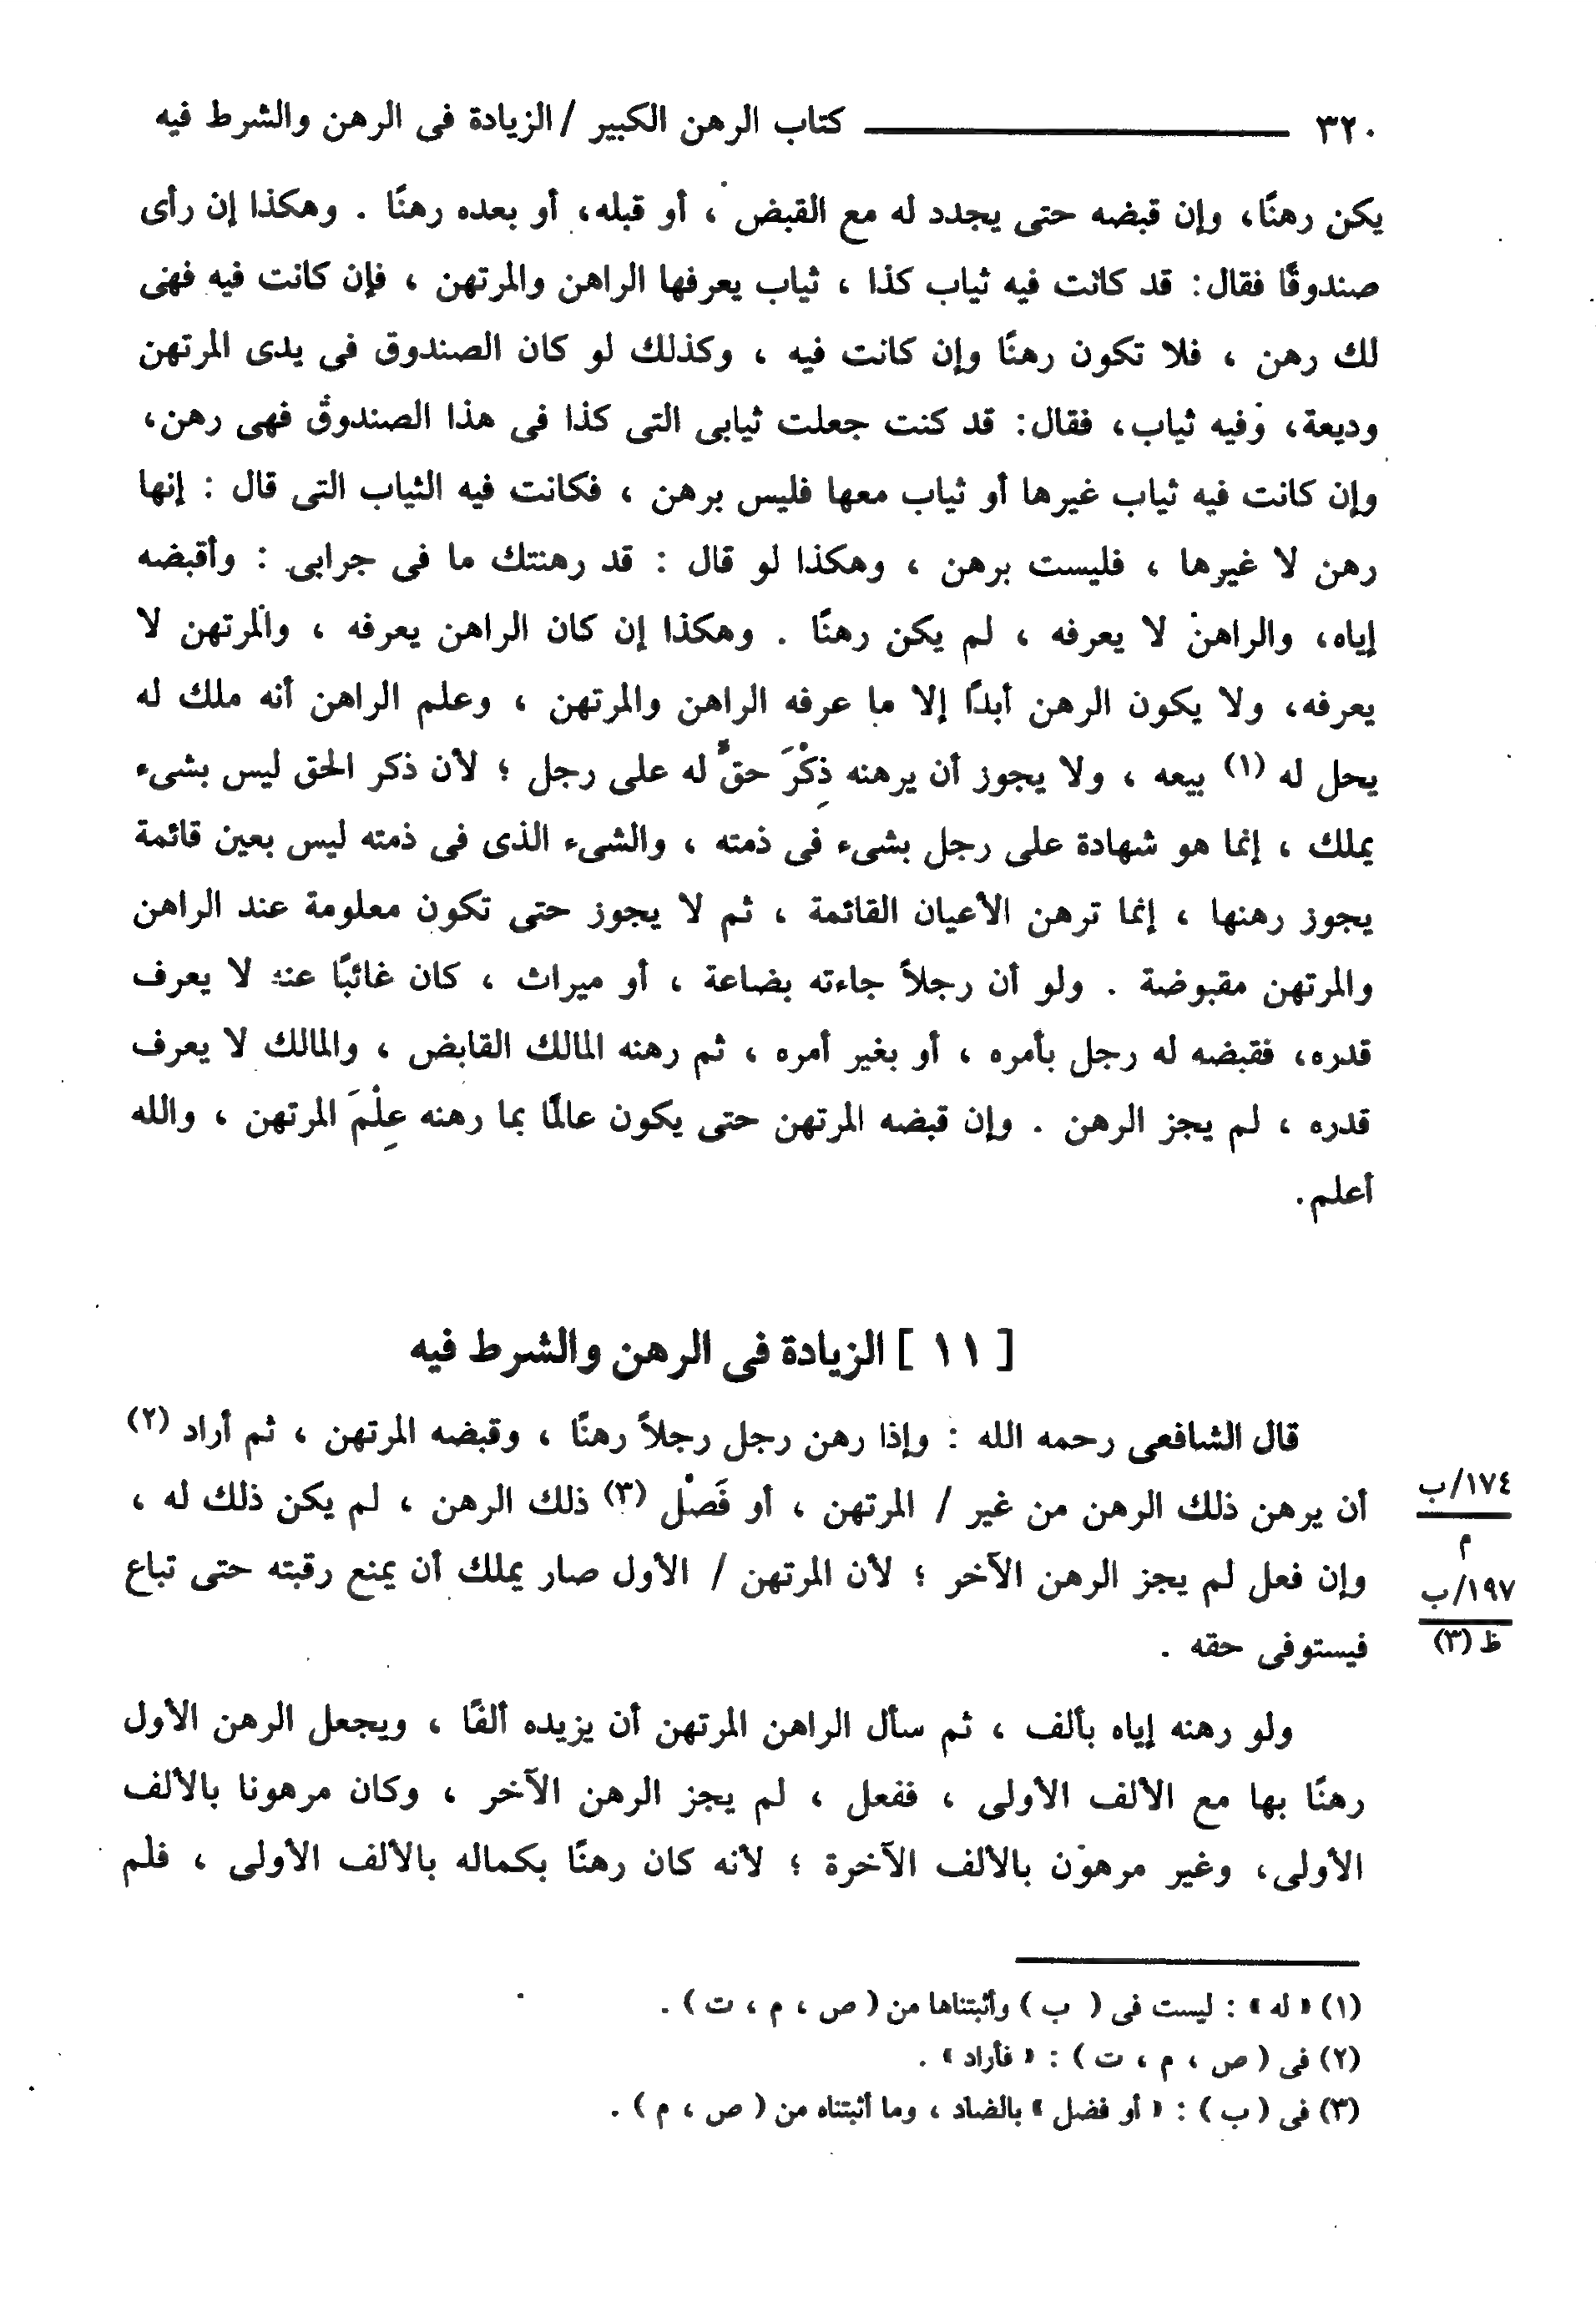 ٣٢٠ كتاب الرهن الكبير / الزيادة فى الرهن والشرط فيه
يكن رهنًا، وإن قبضه حتى يجدد له مع القبض ، أو قبله، أو بعده رهنًا . وهكذا إن رأى
صندوقًا فقال: قد كانت فيه ثياب كذا ، ثياب يعرفها الراهن والمرتهن ، فإن كانت فيه فهى
لك رهن ، فلا تكون رهنًا وإن كانت فيه ، وكذلك لو كان الصندوق فى يدى المرتهن
وديعة، وفيه ثياب، فقال: قد كنت جعلت ثيابى التى كذا فى هذا الصندوق فهى رهن،
وإن كانت فيه ثياب غيرها أو ثياب معها فليس برهن ، فكانت فيه الثياب التى قال : إنها
رهن لا غيرها ، فليست برهن ، وهكذا لو قال : قد رهنتك ما فى جرابى : وأقبضه
إياه، والراهن لا يعرفه ، لم يكن رهنًا . وهكذا إن كان الراهن يعرفه ، والمرتهن لا
يعرفه، ولا يكون الرهن أبدًا إلا ما عرفه الراهن والمرتهن ، وعلم الراهن أنه ملك له
يحل له (١) بيعه ، ولا يجوز أن يرهنه ذِكْرَ حقٍّ له على رجل ؛ لأن ذكر الحق ليس بشىء
يملك ، إنما هو شهادة على رجل بشىء فى ذمته ، والشىء الذى فى ذمته ليس بعين قائمة
يجوز رهنها ، إنما ترهن الأعيان القائمة ، ثم لا يجوز حتى تكون معلومة عند الراهن
والمرتهن مقبوضة . ولو أن رجلاً جاءته بضاعة ، أو ميراث ، كان غائبًا عنه لا يعرف
قدره، فقبضه له رجل بأمره ، أو بغير أمره ، ثم رهنه المالك القابض ، والمالك لا يعرف
قدره ، لم يجز الرهن . وإن قبضه المرتهن حتى يكون عالمًا بما رهنه عِلْمَ المرتهن ، والله
أعلم.
[ ١١ ] الزيادة فى الرهن والشرط فيه
قال الشافعى رحمه الله : وإذا رهن رجل رجلاً رهنًا ، وقبضه المرتهن ، ثم أراد (٢)
أن يرهن ذلك الرهن من غير / المرتهن ، أو فَصْل (٣) ذلك الرهن ، لم يكن ذلك له ،
١٧٤/ب
م
وإن فعل لم يجز الرهن الآخر ؛ لأن المرتهن / الأول صار يملك أن يمنع رقبته حتى تباع
١٩٧/ب
ظ (٣)
فيستوفى حقه .
ولو رهنه إياه بألف ، ثم سأل الراهن المرتهن أن يزيده ألفًا ، ويجعل الرهن الأول
رهنًا بها مع الألف الأولى ، ففعل ، لم يجز الرهن الآخر ، وكان مرهونا بالألف
الأولى، وغير مرهون بالألف الآخرة ؛ لأنه كان رهنًا بكماله بالألف الأولى ، فلم
(١) « له » : ليست فى ( ب ) وأثبتناها من ( ص ، م ، ت ) .
(٢) فى ( ص ، م ، ت ) : « فأراد » .
(٣) فى ( ب ) : « أو فضل » بالضاد ، وما أثبتناه من ( ص ، م ) .